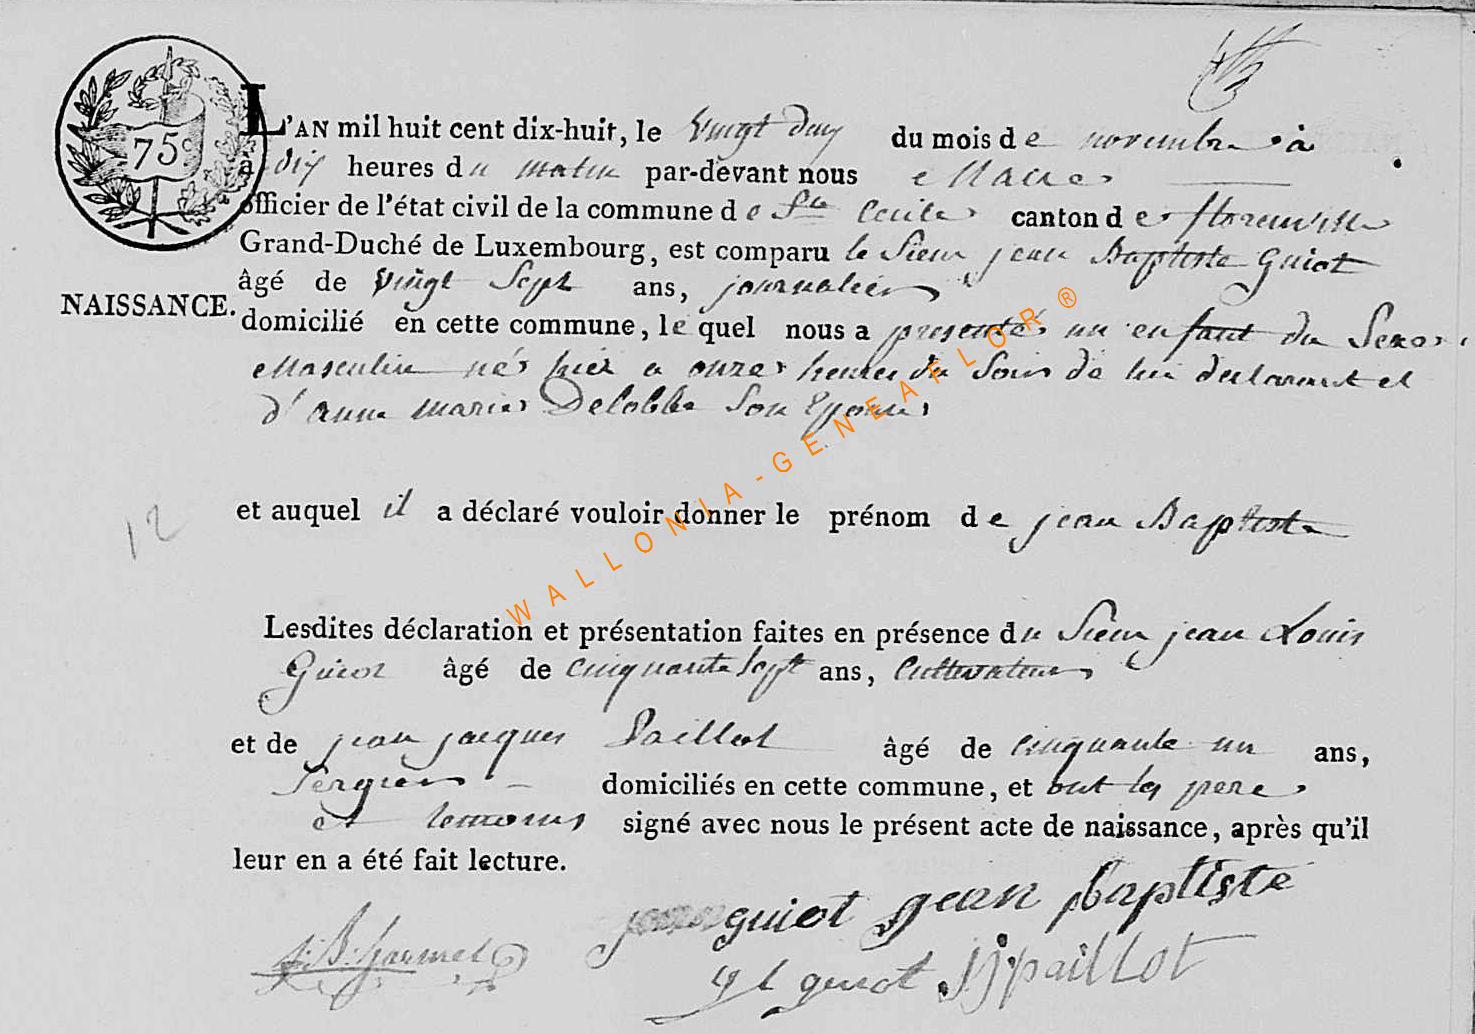 75
L'AN mil huit cent dix-huit, le vingt deux du mois de novembre à
à dix heures du matin par-devant nous Maire
officier de l'état civil de la commune de Ste Cecile canton de florenville
Grand-Duché de Luxembourg, est comparu le Sieur jean Baptiste Guiot
âgé de vingt Sept ans, journalier
NAISSANCE.
domicilié en cette commune, lequel nous a presenté un enfant du Sexe
Masculin né hier a onze heures du Soir de lui declarant et
d'anne marie Delobbe Son Epouse
et auquel il a déclaré vouloir donner le prénom de jean Baptiste
12
Lesdites déclaration et présentation faites en présence du Sieur jean Louis
Guiot âgé de cinquante Sept ans, Cultivateur
et de jean jacques Paillot âgé de cinquante un ans,
Sergier domiciliés en cette commune, et ont les pere
et temoins signé avec nous le présent acte de naissance, après qu'il
leur en a été fait lecture.
guiot jean baptiste
guiot JJ paillot
WALLONIA-GENEAFLOR ®